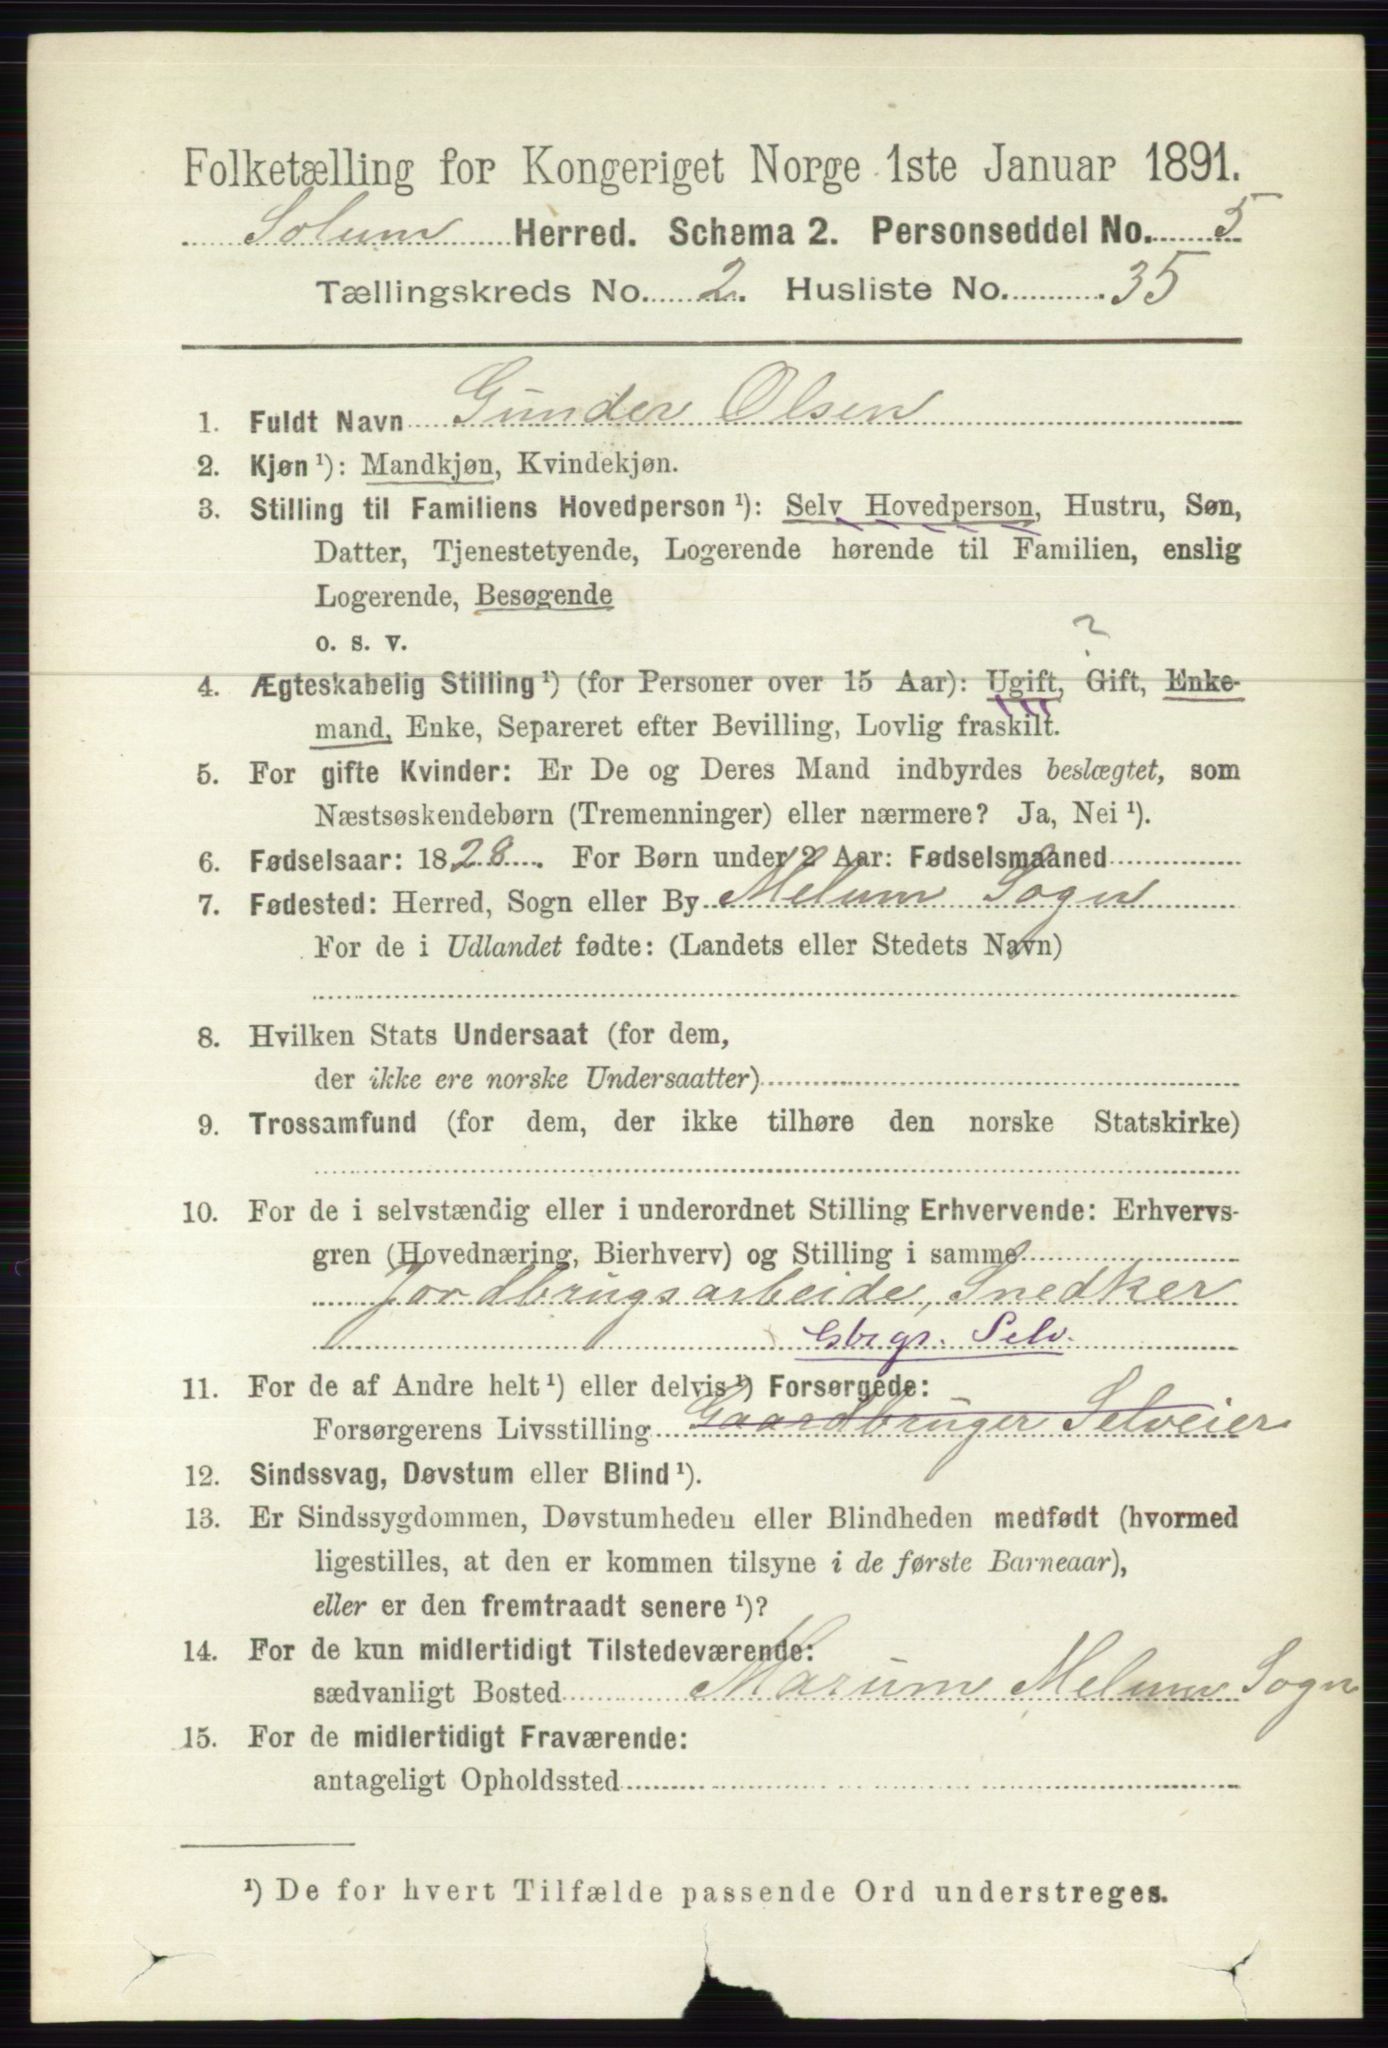 Folketælling for Kongeriget Norge 1ste Januar 1891.
Solum Herred. Schema 2. Personseddel No. 5
Tællingskreds No. 2. Husliste No. 35
1. Fuldt Navn Gunder Olsen
2. Kjøn ¹): Mandkjøn, Kvindekjøn.
3. Stilling til Familiens Hovedperson ¹): Selv Hovedperson, Hustru, Søn,
Datter, Tjenestetyende, Logerende hørende til Familien, enslig
Logerende, Besøgende
o. s. v.
?
4. Ægteskabelig Stilling ¹) (for Personer over 15 Aar): Ugift, Gift, Enke-
mand, Enke, Separeret efter Bevilling, Lovlig fraskilt.
5. For gifte Kvinder: Er De og Deres Mand indbyrdes beslægtet, som
Næstsøskendebørn (Tremenninger) eller nærmere? Ja, Nei ¹).
6. Fødselsaar: 1828. For Børn under 2 Aar: Fødselsmaaned
7. Fødested: Herred, Sogn eller By Melum Sogn
For de i Udlandet fødte: (Landets eller Stedets Navn)
8. Hvilken Stats Undersaat (for dem,
der ikke ere norske Undersaatter)
9. Trossamfund (for dem, der ikke tilhøre den norske Statskirke)
10. For de i selvstændig eller i underordnet Stilling Erhvervende: Erhvervs-
gren (Hovednæring, Bierhverv) og Stilling i samme
Jordbrugsarbeide, Snedker
Gbrgr. Selv.
11. For de af Andre helt ¹) eller delvis ¹) Forsørgede:
Forsørgerens Livsstilling Gaardbruger Selveier
12. Sindssvag, Døvstum eller Blind ¹).
13. Er Sindssygdommen, Døvstumheden eller Blindheden medfødt (hvormed
ligestilles, at den er kommen tilsyne i de første Barneaar),
eller er den fremtraadt senere ¹)?
14. For de kun midlertidigt Tilstedeværende:
sædvanligt Bosted Marum Melum Sogn
15. For de midlertidigt Fraværende:
antageligt Opholdssted
¹) De for hvert Tilfælde passende Ord understreges.